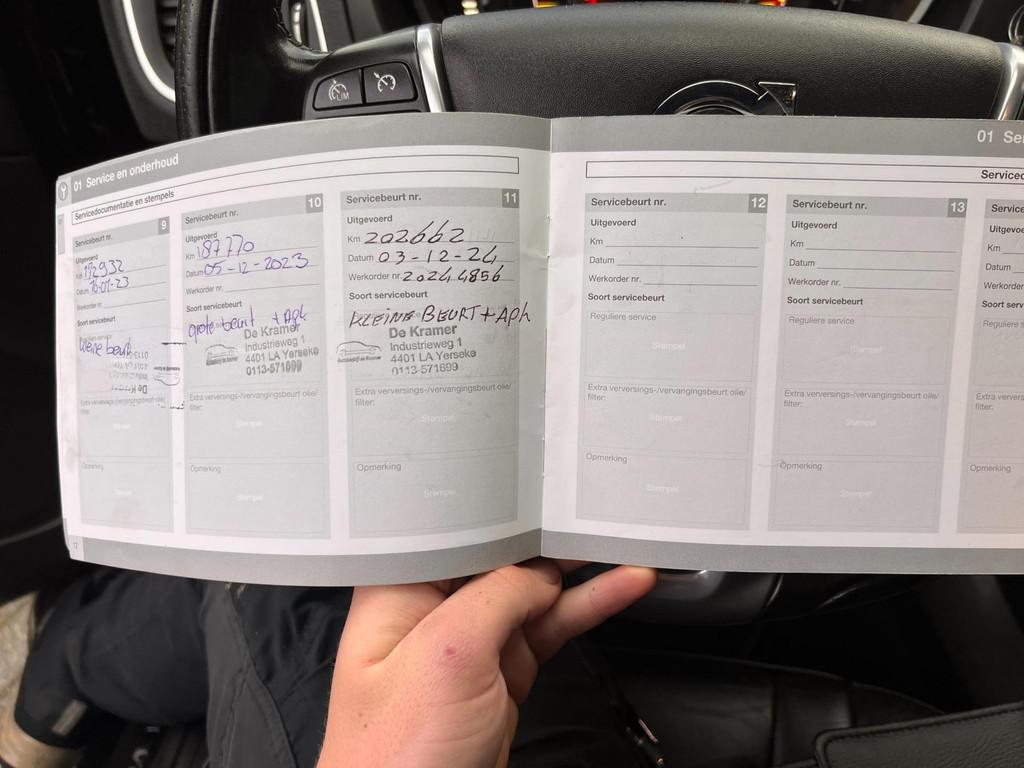 LIM
01 Service en onderhoud
Servicedocumentatie en stempels
Servicebeurt nr. 9
Uitgevoerd
Km 172932
Datum 16-01-23
Werkorder nr.
Soort servicebeurt
kleine beurt
0113-571699
De Kramer
Extra verversings-/vervangingsbeurt olie/
filter:
Stempel
Opmerking
Stempel
Servicebeurt nr. 10
Uitgevoerd
Km 187770
Datum 05-12-2023
Werkorder nr.
Soort servicebeurt
grote beurt + Apk
De Kramer
Industrieweg 1
4401 LA Yerseke
0113-571699
Extra verversings-/vervangingsbeurt olie/
filter:
Stempel
Opmerking
Stempel
Servicebeurt nr. 11
Uitgevoerd
Km 202662
Datum 03-12-24
Werkorder nr. 20244856
Soort servicebeurt
KLEINE BEURT + APK
De Kramer
Industrieweg 1
4401 LA Yerseke
0113-571699
Extra verversings-/vervangingsbeurt olie/
filter:
Stempel
Opmerking
Stempel
12
01 Se
Serviced
Servicebeurt nr. 12
Uitgevoerd
Km
Datum
Werkorder nr.
Soort servicebeurt
Reguliere service
Stempel
Extra verversings-/vervangingsbeurt olie/
filter:
Stempel
Opmerking
Stempel
Servicebeurt nr. 13
Uitgevoerd
Km
Datum
Werkorder nr.
Soort servicebeurt
Reguliere service
Stempel
Extra verversings-/vervangingsbeurt olie/
filter:
Stempel
Opmerking
Stempel
Servicebeu
Uitgevoerd
Km
Datum
Werkorder
Soort serv
Reguliere
Extra verve
filter:
Opmerking